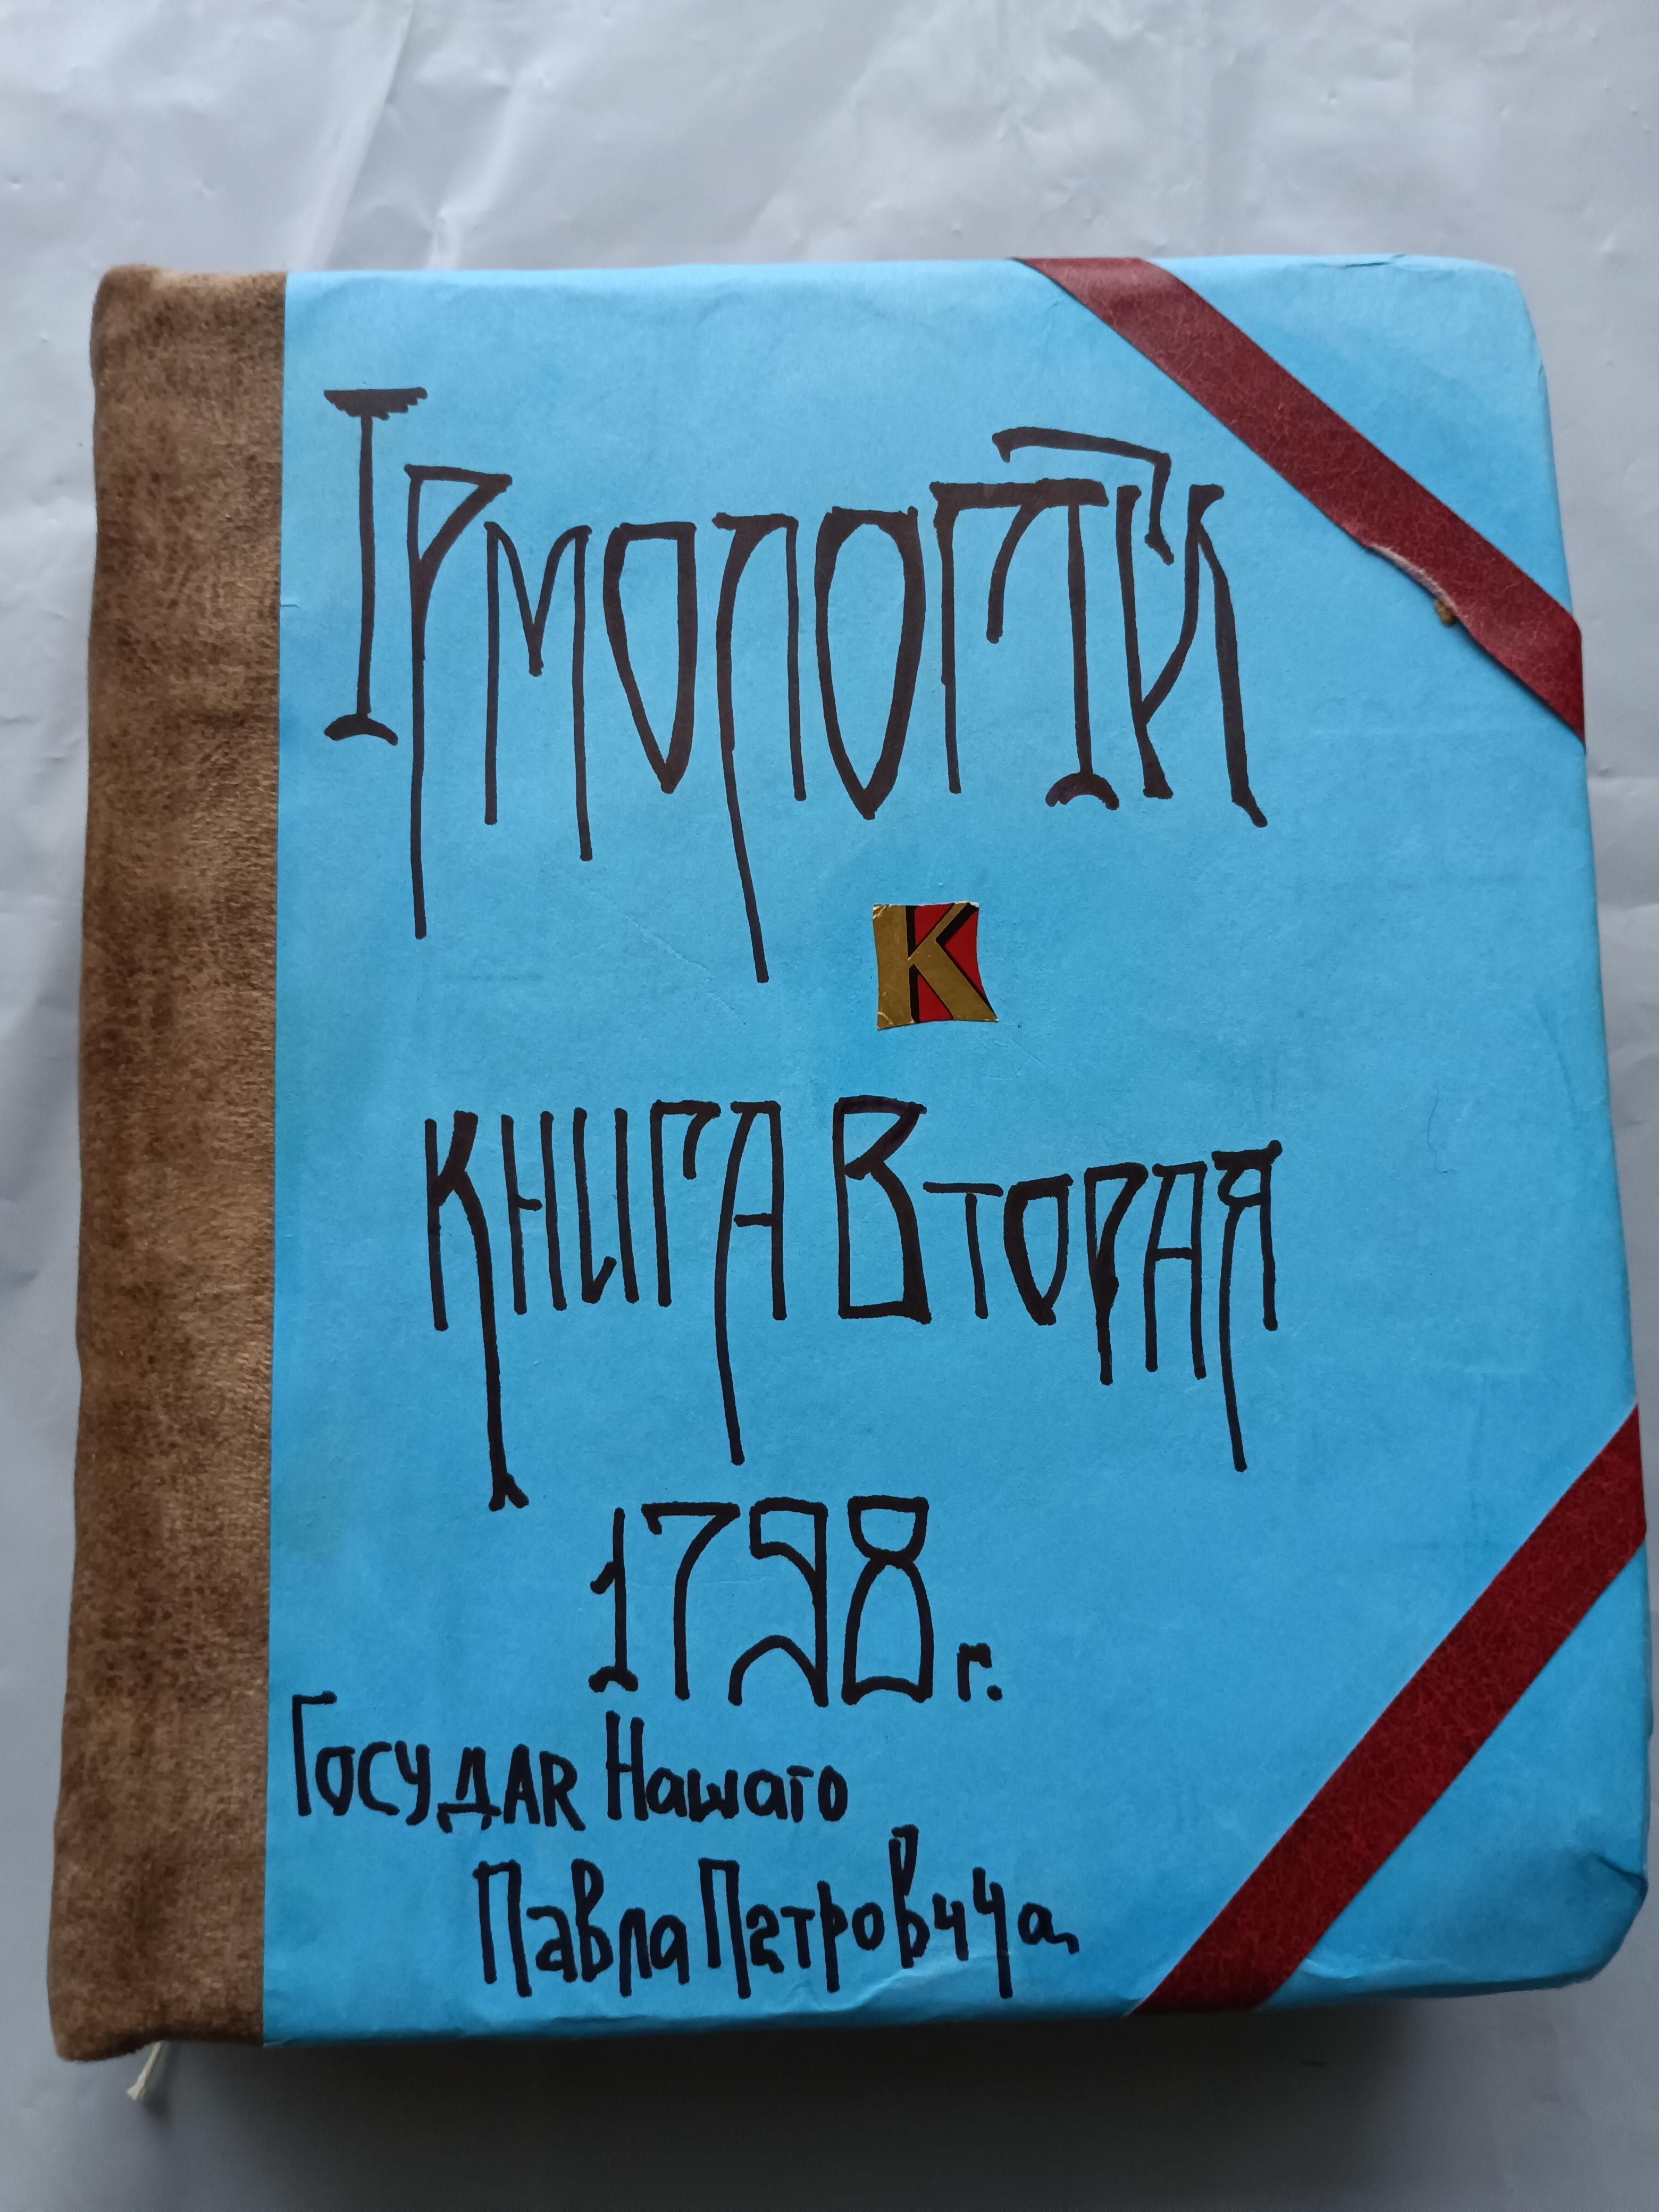 Ірмологій
К
Книга Вторая
1798 г.
ГосудаR Нашаго
Павла Петровича